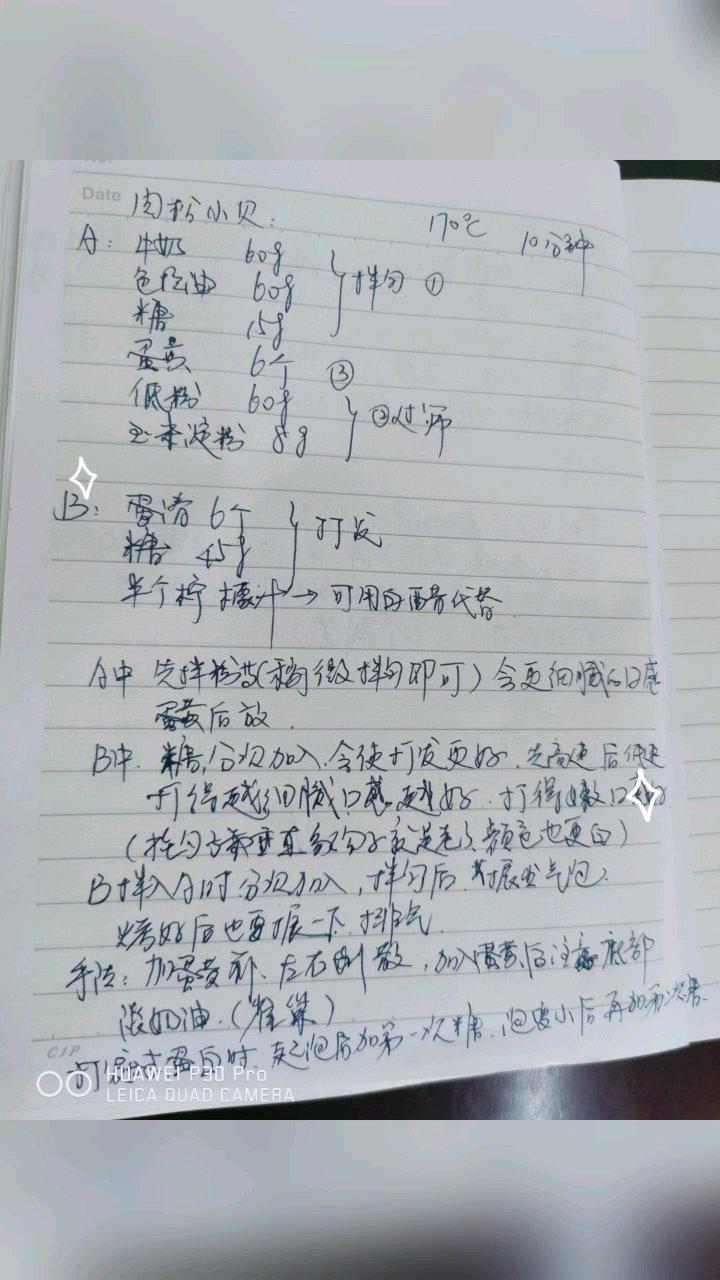 Date 肉松小贝:
170℃ 10分钟
A: 牛奶 60g
色拉油 60g } 拌匀 ①
糖 15g
蛋黄 6个 ③
低粉 60g
玉米淀粉 8g } ②过师
B: 蛋清 6个
糖 45g } 打发
半个柠檬汁 → 可用白醋代替
A中 先拌粉类(稍微拌匀即可) 会更细腻的口感
蛋黄后放.
B中. 糖,分次加入,会使打发更好.先高速后低速
打得越细腻口感越好.打得嫩口
B拌入A时分次加入,拌匀后 震出气包.
烤好后也要振一下.排气.
手法: 加蛋黄前、左右 散,加入蛋黄后注意底部
淡奶油.
打蛋白时 起泡后加第一次糖.泡变小后再加第二次糖.
CJP
HUAWEI P30 Pro
LEICA QUAD CAMERA